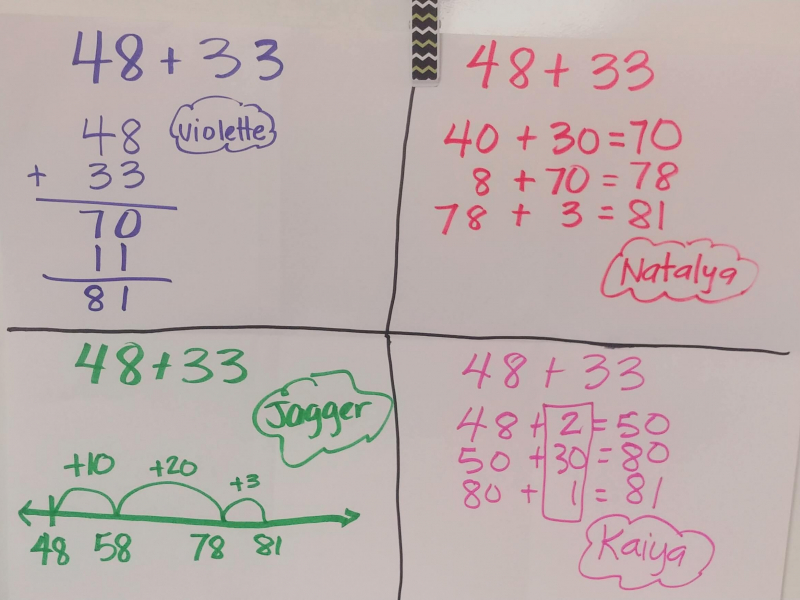 48 + 33
violette
48
+ 33
70
11
81
48 + 33
40 + 30 = 70
8 + 70 = 78
78 + 3 = 81
Natalya
48 + 33
Jagger
+10 +20 +3
48 58 78 81
48 + 33
48 + 2 = 50
50 + 30 = 80
80 + 1 = 81
Kaiya